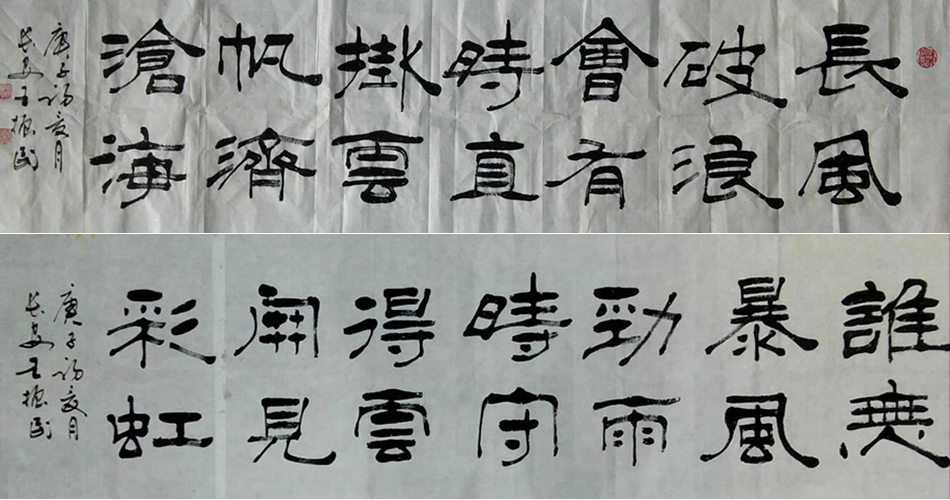 長風
破浪
會有
時直
掛雲
帆濟
滄海
庚子初夏月
长安王振民
誰無
暴風
勁雨
時守
得雲
開見
彩虹
庚子初夏月
长安王振民